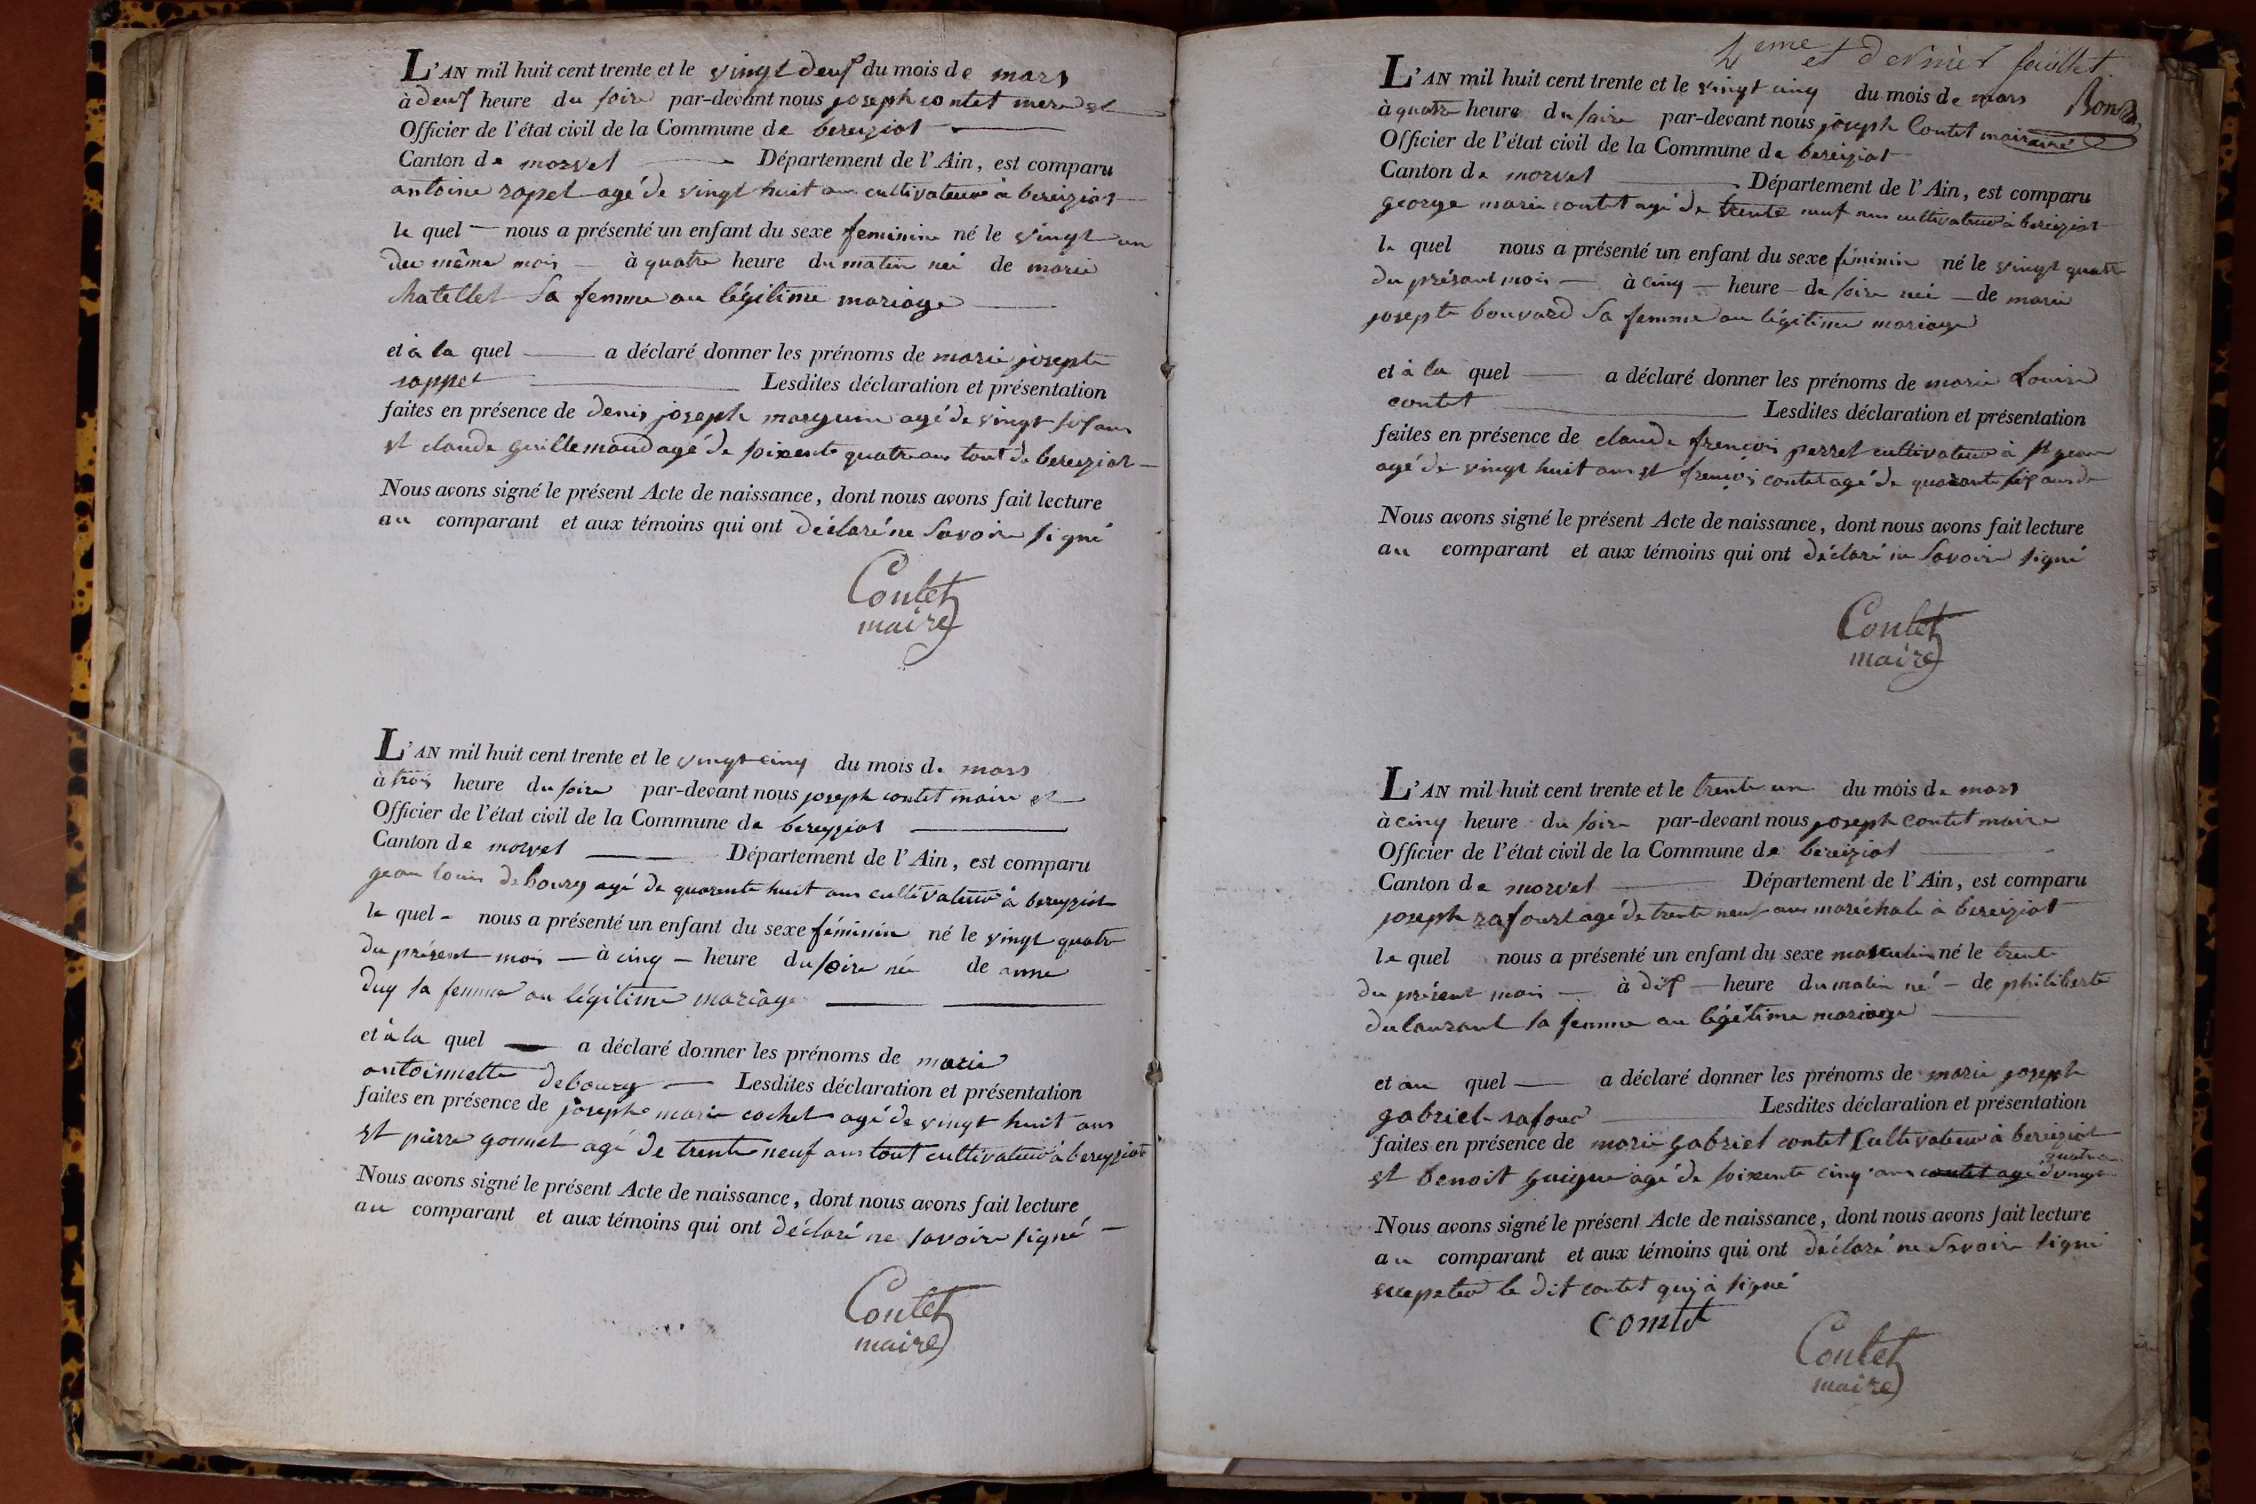 L'AN mil huit cent trente et le vingt deux du mois de mars
à deux heure du soire par-devant nous joseph contet mere et
Officier de l'état civil de la Commune de bereiziat
Canton de morvel Département de l'Ain, est comparu
antoine roppet agé de vingt huit ans cultivateur à bereiziat
le quel nous a présenté un enfant du sexe feminine né le vingt un
du même mois à quatre heure du matin neé de marie
chatellet sa femme au légitime mariage
et à la quel a déclaré donner les prénoms de marie josephte
roppet Lesdites déclaration et présentation
faites en présence de denis joseph marguin agé de vingt six ans
et claude guillemaud agé de soixente quatre ans tout de bereiziat
Nous avons signé le présent Acte de naissance, dont nous avons fait lecture
au comparant et aux témoins qui ont déclaré ne savoire signé
Contet
maire
L'AN mil huit cent trente et le vingt cinq du mois de mars
à trois heure du soire par-devant nous joseph contet maire et
Officier de l'état civil de la Commune de bereyziat
Canton de morvel Département de l'Ain, est comparu
gean louis debourg agé de quarente huit ans cultivateur à bereyziat
le quel nous a présenté un enfant du sexe féminin né le vingt quatre
du présent mois à cinq heure du soire né de anne
duy sa femme au légitime mariage
et à la quel a déclaré donner les prénoms de marie
antoinnette debourg Lesdites déclaration et présentation
faites en présence de joseph marie cochet agé de vingt huit ans
et pierre gonnet agé de trente neuf ans tout cultivateur à bereyziat
Nous avons signé le présent Acte de naissance, dont nous avons fait lecture
au comparant et aux témoins qui ont déclaré ne savoire signé
Contet
maire
eme et dernier feuillet
L'AN mil huit cent trente et le vingt cinq du mois de mars
à quatre heure du soire par-devant nous joseph Contet maire
Officier de l'état civil de la Commune de bereiziat
Canton de morvel Département de l'Ain, est comparu
george marie contet agé de trente neuf ans cultivateur à bereiziat
le quel nous a présenté un enfant du sexe féminin né le vingt quatre
du présant mois à cinq heure de soire neé de marie
josepte bouvard sa femme au légitime mariage
et à la quel a déclaré donner les prénoms de marie Louise
contet Lesdites déclaration et présentation
faites en présence de claude françois perret cultivateur à st gean
agé de vingt huit ans et françois contet agé de quarante six ans de
Nous avons signé le présent Acte de naissance, dont nous avons fait lecture
au comparant et aux témoins qui ont déclaré ne savoire signé
Contet
maire
L'AN mil huit cent trente et le trente un du mois de mars
à cinq heure du soire par-devant nous joseph contet maire
Officier de l'état civil de la Commune de bereiziat
Canton de morvel Département de l'Ain, est comparu
joseph rafourt agé de trente neuf ans maréchale à bereiziat
le quel nous a présenté un enfant du sexe masculin né le trente
du présent mois à dix heure du matin né de philiberte
dulaurant sa femme au légétime mariage
et au quel a déclaré donner les prénoms de marie joseph
gabriel rafour Lesdites déclaration et présentation
faites en présence de marie gabriel contet Cultivateur à bereiziat
et benoit guigue agé de soixente cinq ans contet agé de vingt quatre
Nous avons signé le présent Acte de naissance, dont nous avons fait lecture
au comparant et aux témoins qui ont déclaré ne savoire signé
excepter le dit contet qui à signé
Contet
Contet
maire